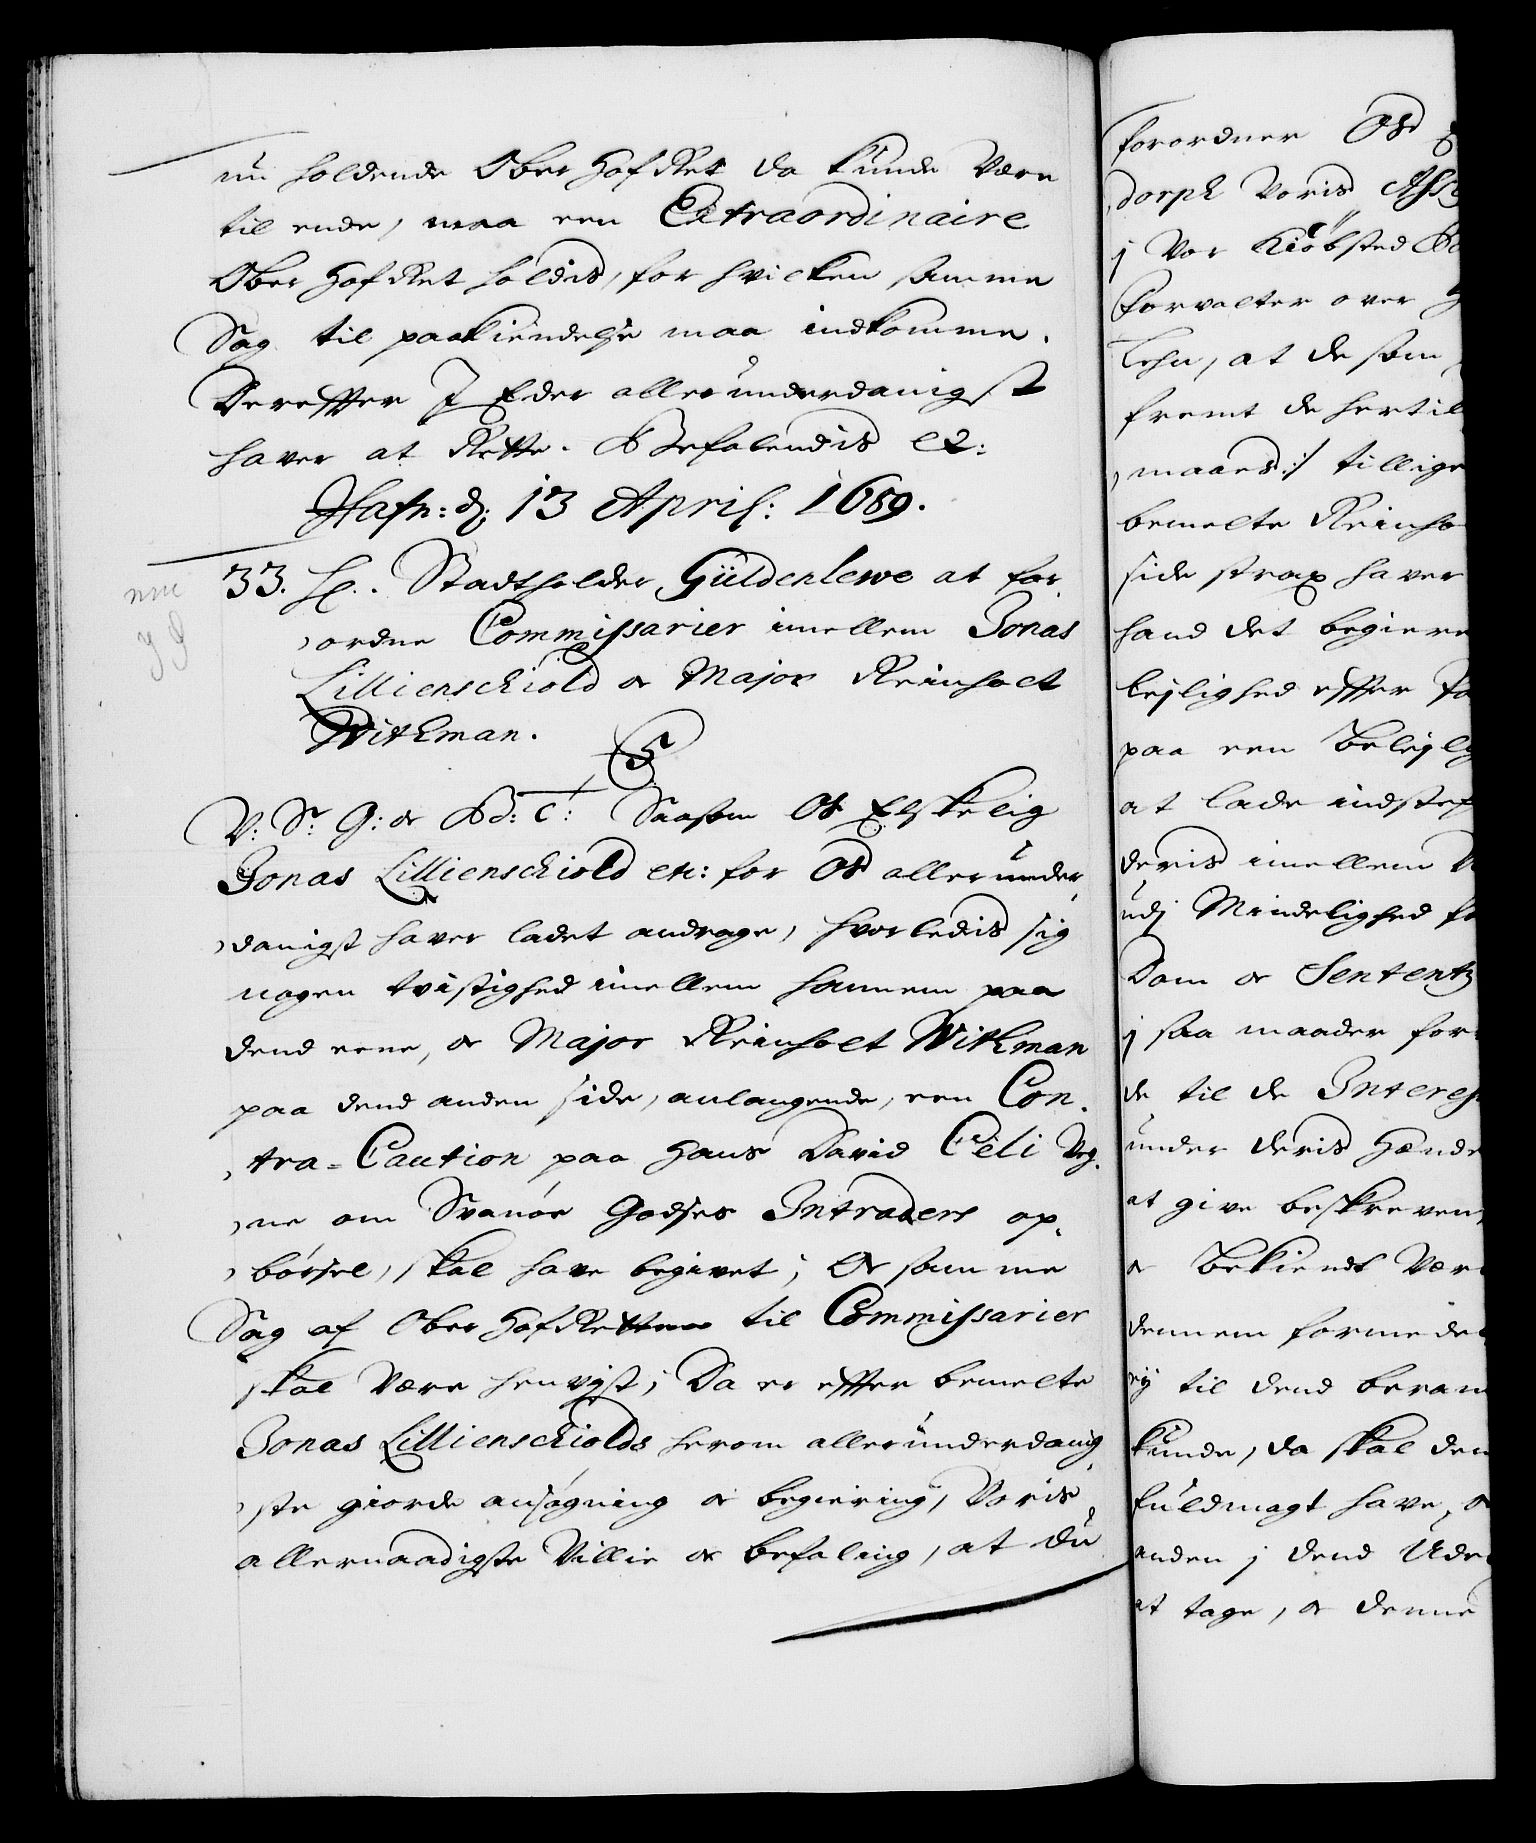 nu holdende Ober Hof Ret da kunde være
til ende, maa een Extraordinaire
Ober Hof Ret holdis, for hvicken samme
Sag til paakiendelse maa indkomme.
Derefter I Eder allerunderdanigst
haver at Rette. Befalendis etc:
Hafn: d: 13 April: 1689.
33. Hr. Stadtholder Güldenlewe at for,
,ordne Commissarier imellem Jonas
Lillienschiold oc Major Reinholt
Witkman.
C5
V: Sr. G: oc Bd: t: Saasom Os Elskelig
Jonas Lillienschiold etc: for Os allerunder,
,danigst haver ladet andrage, hvorledis sig
nogen tvistighed imellem hannem paa
dend eene, oc Major Reinholt Witkman
paa dend anden side, anlangende, een Con,
,tra-Caution paa Hans David Celi Veg,
,ne om Svanöe Godses Intraders op,
,börsel, skal have begivet; Oc samme
Sag af Ober Hof Retten til Commissarier
skal være henvist; Da er efter bemelte
Jonas Lillienschiolds herom allerunderdanig,
,ste giorde ansögning oc begiering, Voris
allernaadigste Villie oc befaling, at du
forordner Os
dorph Voris Ass
j Vor Kiöbsted
Forvalter over
Lehn, at de som
fremt de hertil
,maaes:/ tillige
bemelte Reinho
side strax haver
hand det begiere
lejlighed efter
paa een belejlig
at lade indstef
deris imellem
udj Mindelighed
Dom oc Sententz
j saa maader for
de til de Interes
under deris Hænde
at give beskreven
oc bekiendt Vær
dennem formedel
ej til dend beram
kunde, da skal den
fuldmagt have, oc
anden j dend Ude
at tage, oc denne